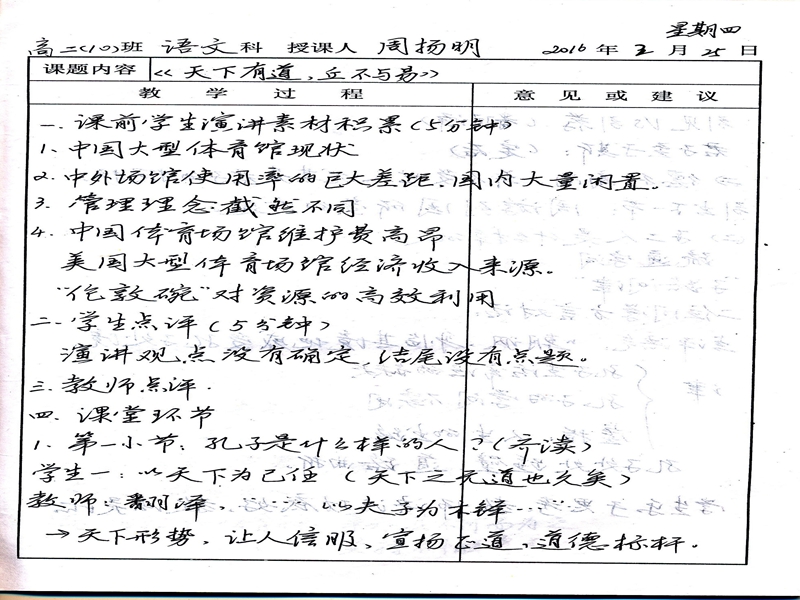 星期四
高二(10)班 语文科 授课人 周扬明 2016年 3月 25日
课题内容 《天下有道,丘不与易》
教学过程 意见或建议
一. 课前学生演讲素材积累(5分钟)
1、中国大型体育馆现状
2. 中外场馆使用率的巨大差距. 国内大量闲置。
3. 管理理念截然不同
4. 中国体育场馆维护费高昂
美国大型体育场馆经济收入来源。
“伦敦碗”对资源的高效利用
二. 学生点评(5分钟)
演讲观点没有确定, 结尾没有点题。
三. 教师点评.
四. 课堂环节
1. 第一小节: 孔子是什么样的人?(齐读)
学生一: 以天下为己任 (天下之无道也久矣)
教师: 翻译, “ 以夫子为木铎…”
→天下形势, 让人信服, 宣扬正道, 道德标杆。